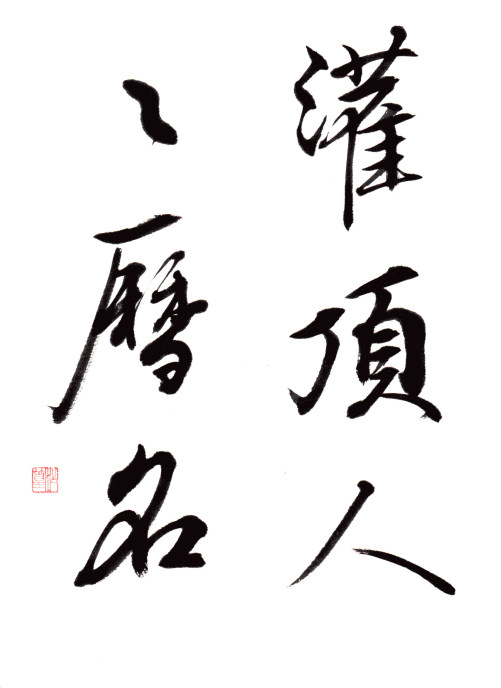 灌頂人
〻曆名